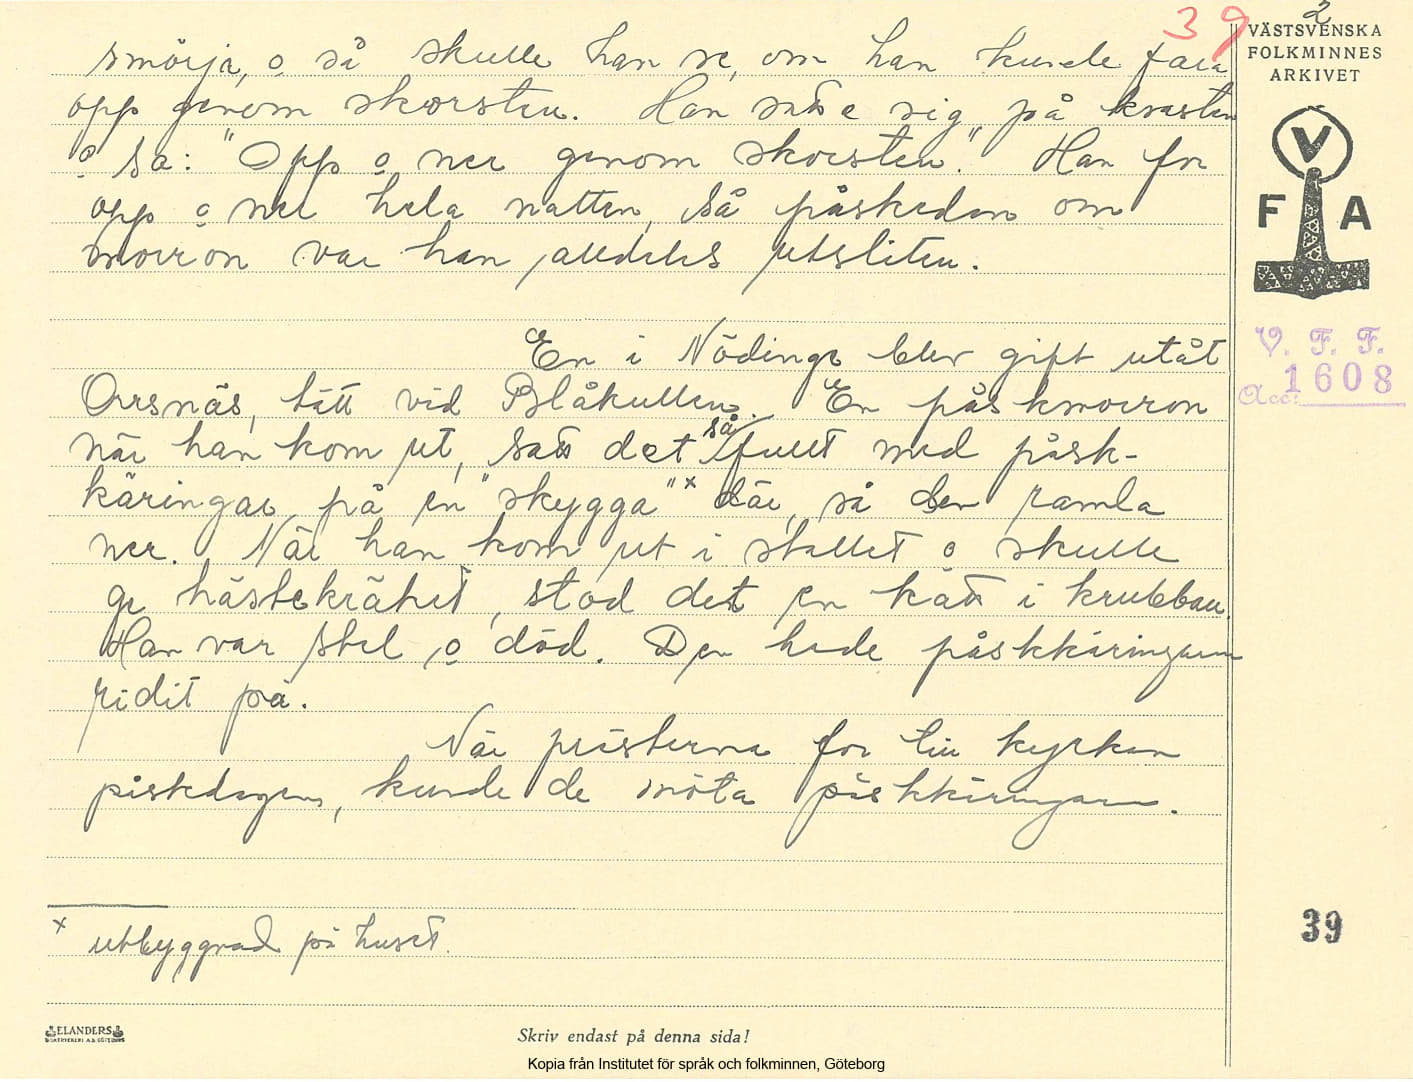 39
2
VÄSTSVENSKA
FOLKMINNES
ARKIVET
V
F A
V. F. F.
Acc: 1608
smörja, o så skulle han se, om han kunde fara
opp genom skorsten. Han satte sig på kvasten
o sa: "Opp o ner genom skorsten." Han for
opp o ner hela natten, så påskedan om
morron var han alldeles utsliten.
En i Nödinge blev gift utåt
Orrsnäs, tätt vid Blåkullen. En påskmorron
när han kom ut, satt det så fullt med påsk-
käringar på en "skygga"x där, så den ramla
ner. När han kom ut i stallet o skulle
ge hästekräket, stod det en katt i krubban.
Han var stel o död. Den hade påskkäringarna
ridit på.
När prästerna for till kyrkan
påskdagen, kunde de möta påskkäringarna.
x utbyggnad på huset.
39
ELANDERS
BOKTRYCKERI A.B. GÖTEBORG
Skriv endast på denna sida!
Kopia från Institutet för språk och folkminnen, Göteborg